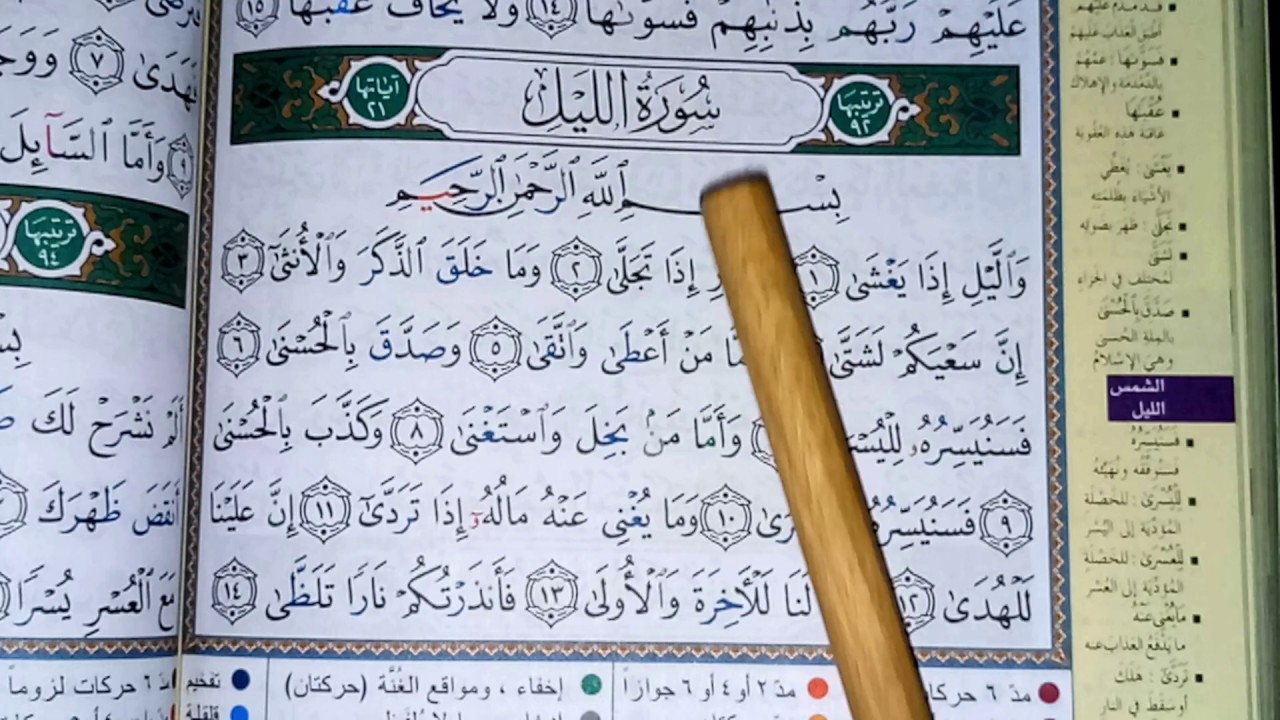 عَلَيْهِمْ رَبُّهُم بِذَنۢبِهِمْ فَسَوَّىٰهَا ١٤ وَلَا يَخَافُ عُقْبَٰهَا ١٥
ترتيبها ٩٢ سُورَةُ اللَّيْلِ آياتها ٢١
بِسْمِ ٱللَّهِ ٱلرَّحْمَٰنِ ٱلرَّحِيمِ
وَٱلَّيْلِ إِذَا يَغْشَىٰ ١ إِذَا تَجَلَّىٰ ٢ وَمَا خَلَقَ ٱلذَّكَرَ وَٱلْأُنثَىٰٓ ٣
إِنَّ سَعْيَكُمْ لَشَتَّىٰ مَنْ أَعْطَىٰ وَٱتَّقَىٰ ٥ وَصَدَّقَ بِٱلْحُسْنَىٰ ٦
فَسَنُيَسِّرُهُۥ وَأَمَّا مَنۢ بَخِلَ وَٱسْتَغْنَىٰ ٨ وَكَذَّبَ بِٱلْحُسْنَىٰ
٩ فَسَنُيَسِّرُهُۥ ١٠ وَمَا يُغْنِي عَنْهُ مَالُهُۥٓ إِذَا تَرَدَّىٰٓ ١١ إِنَّ عَلَيْنَا
لَلْهُدَىٰ ١٢ لَنَا لَلْـَٔاخِرَةَ وَٱلْأُولَىٰ ١٣ فَأَنذَرْتُكُمْ نَارًا تَلَظَّىٰ ١٤
مدّ ٦ حركا
مدّ ٢ أو ٤ أو ٦ جوازاً
إخفاء ، ومواقع الغُنَّة (حركتان)
تفخيم
قلقلة
أطبق العذاب عليهم
فسوّاها : عمّهم
بالدمدمة والإهلاك
عُقْبَٰهَا
عاقبة هذه العقوبة
يغشى : يغطّي
الأشياء بظلمته
تجلّى : ظهر بضوئه
لشتّى
لمختلف في الجزاء
صدّق بالحسنى
بالملة الحسنى
وهي الإسلام
الشمس
الليل
فسنيسّره
فسنوفقه ونهيّئه
لليسرى : للخصلة
المؤدّية إلى اليُسر
للعسرى : للخصلة
المؤدّية إلى العُسر
ما يغني عنه
ما يدفع العذاب عنه
تردّى : هلك
أو سقط في النار
٧
٩ وَأَمَّا ٱلسَّآئِلَ
ترتيبها ٩٤
أَلَمْ نَشْرَحْ لَكَ
أَنقَضَ ظَهْرَكَ
مَعَ ٱلْعُسْرِ يُسْرًا
٦ حركات لزوماً